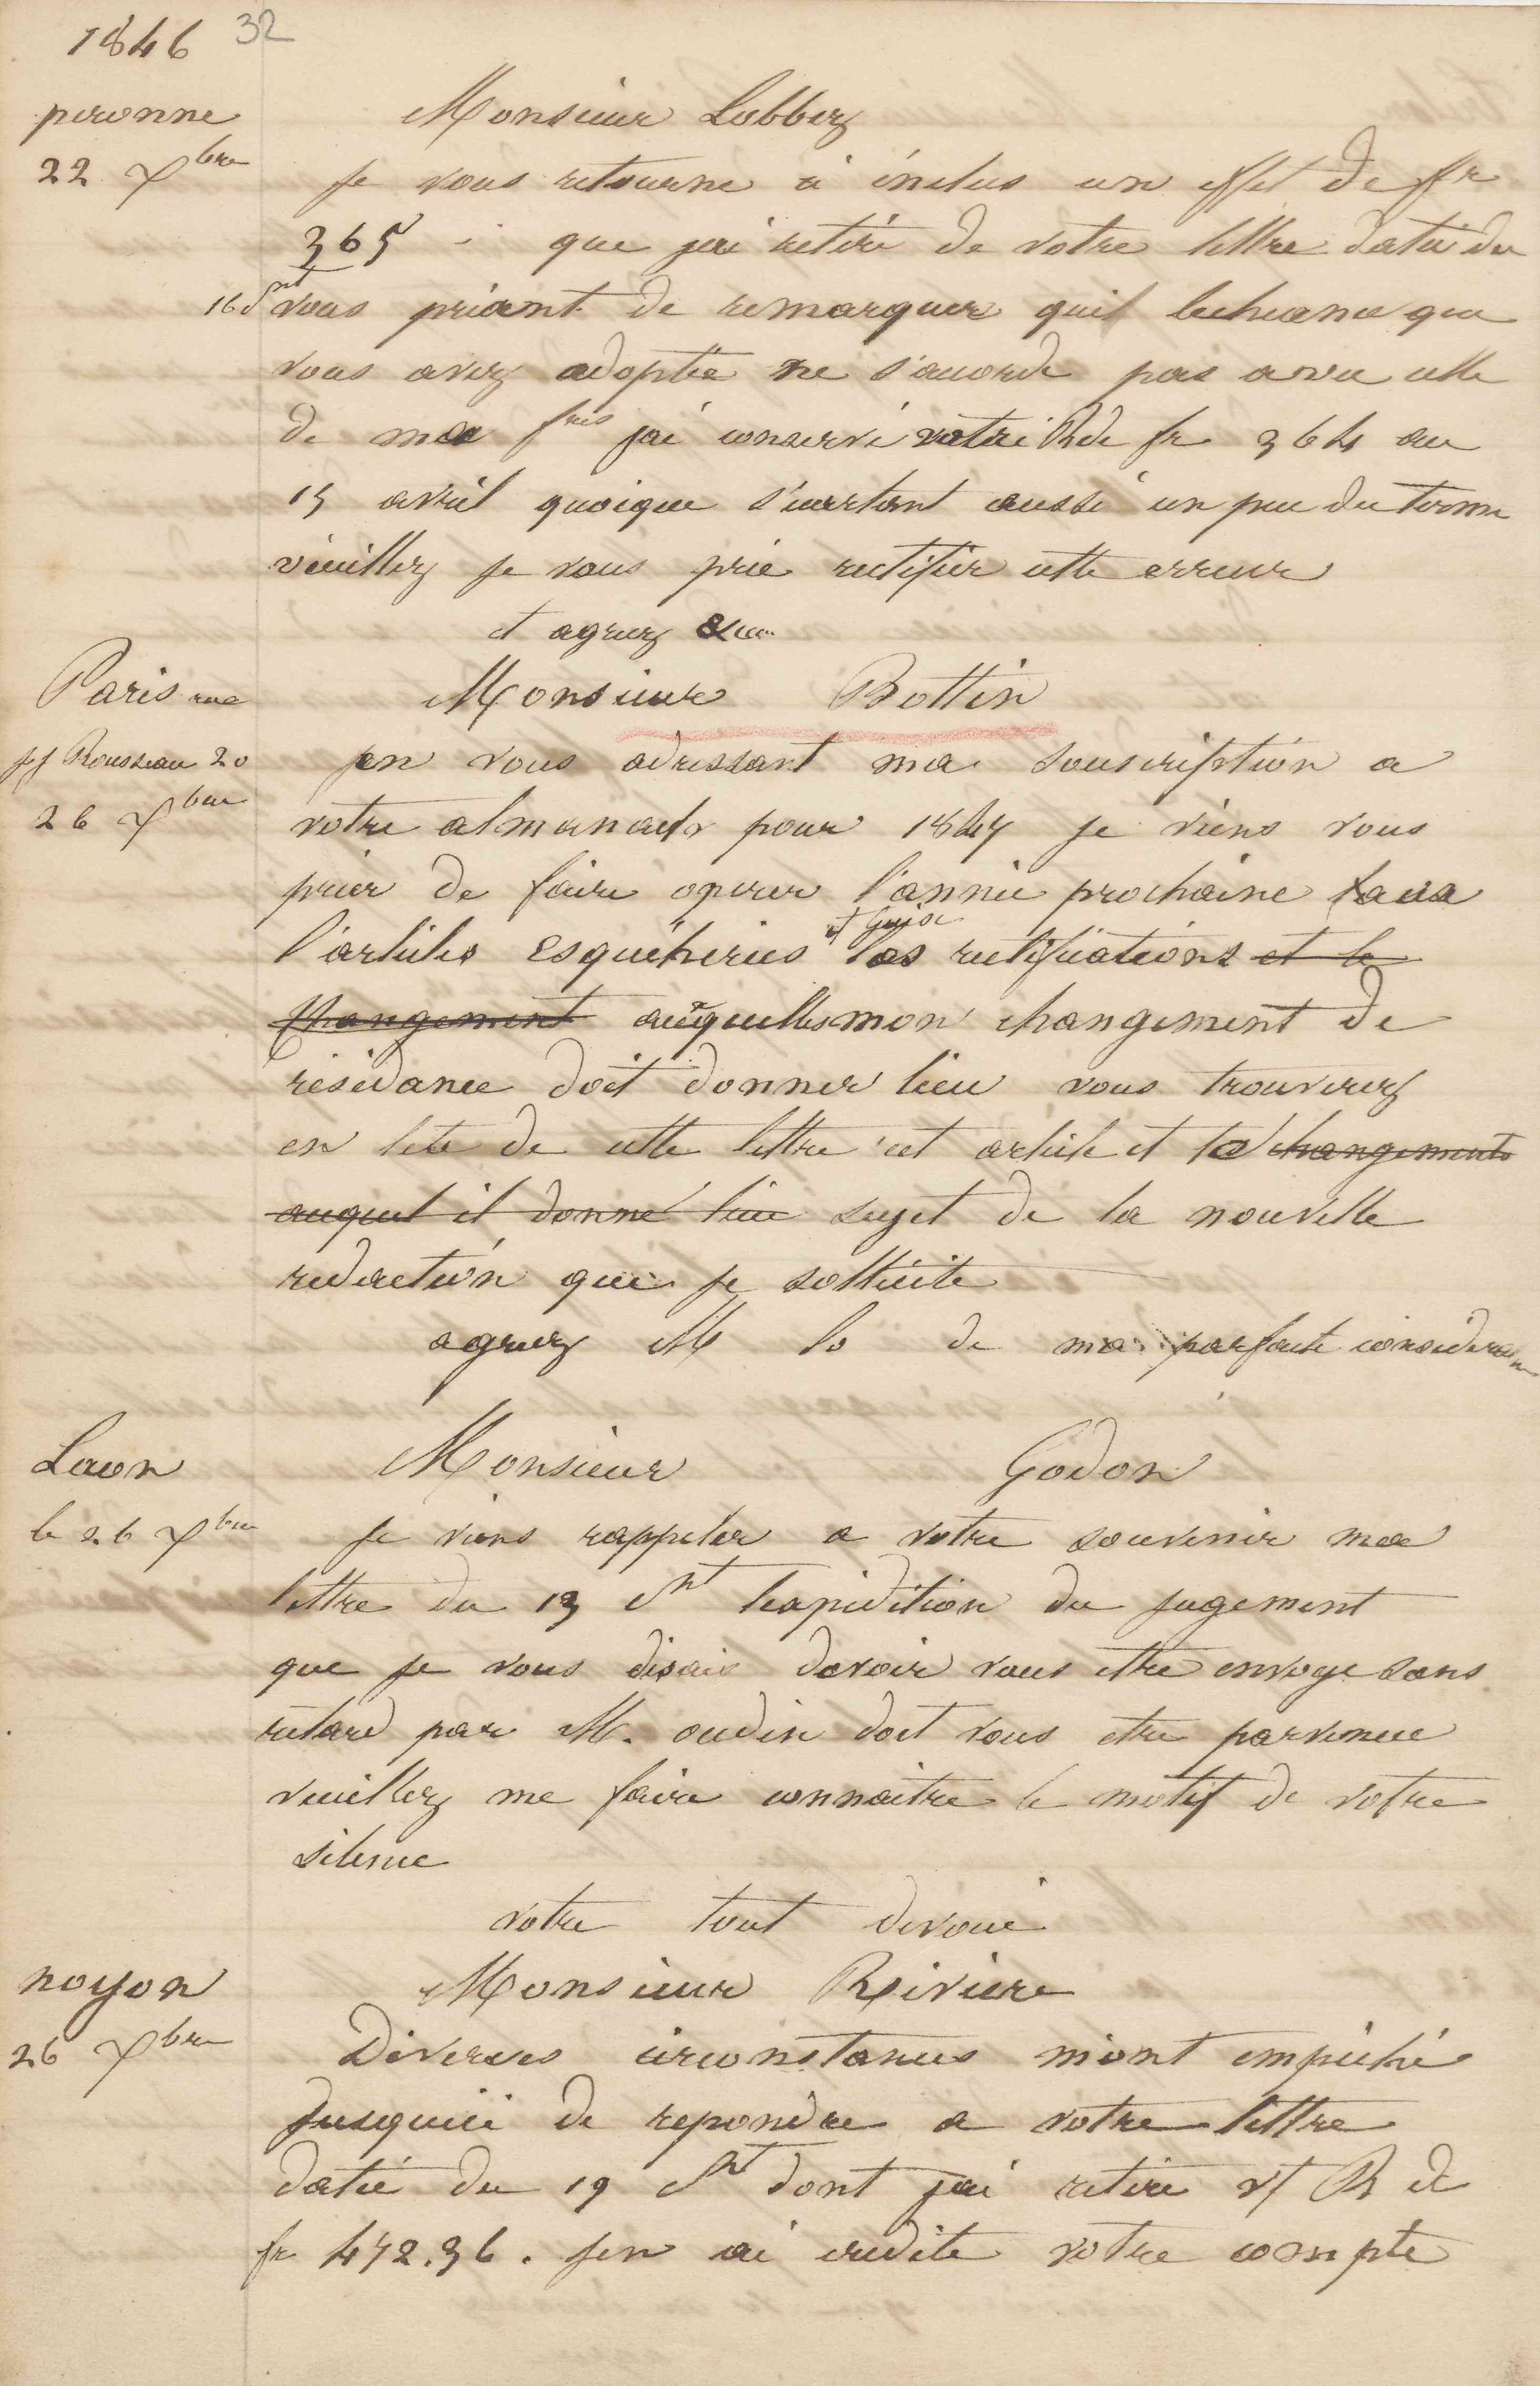 1846 32
peronne
22 Xbre
Monsieur Lobbez
Je vous retourne ci inclus un effet de fr
365 - que jai retiré de votre lettre datée du
16 dnt vous priant de remarquer quil lecheance que
vous avez adoptée ne s'acorde pas avec celle
de ma fres jai conservé votre R de fr 364 au
15 avril quoique s'ecartant aussi un peu du terme
veuillez je vous prie rectifier cette erreur
et agreez &c
Paris rue
jj Rousseau 20
26 Xbre
Monsieur Bottin
en vous adressant ma souscription a
votre almanach pour 1847 je viens vous
prier de faire operer l'année prochaine
l'articles esquéheries et Guise les rectifications et le
changement auxquelles mon changement de
residance doit donner lieu vous trouverez
en tete de cette lettre cet article et le changements
auquel il donne lieu sujet de la nouvelle
redaction que je sollicite
agreez M lo de ma parfaite consideraon
Laon
le 26 Xbre
Monsieur Godon
Je viens rappeler a votre souvenir ma
lettre du 13 dnt lexpedition du jugement
que je vous disais devoir vous etre envoye sans
retard par M. oudin doit vous etre parvenue
veuillez me faire connaitre le motif de votre
silence
votre tout devoué
noyon
26 Xbre
Monsieur Riviere
Diverses circonstances m'ont empéché
Jusquici de repondre a votre lettre
datée du 19 dnt dont jai retiré v/ R de
fr 472.36. jen ai credité votre compte